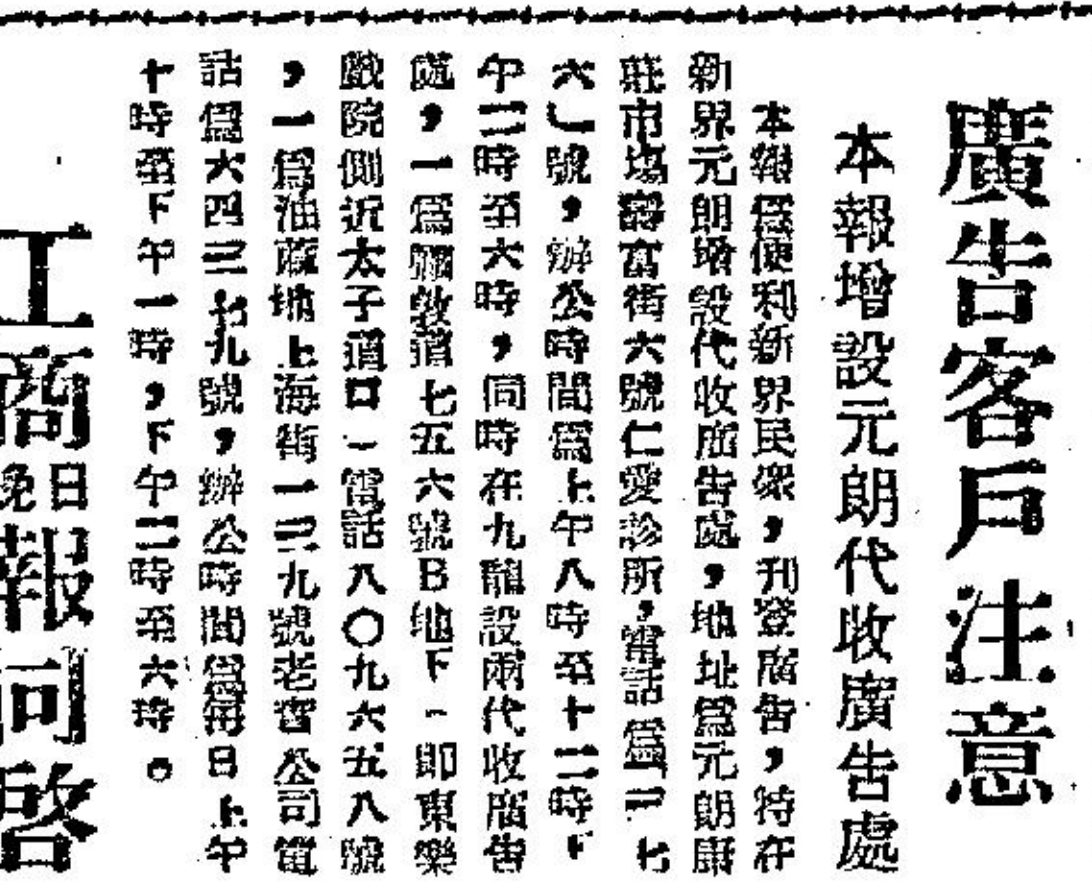 廣告客戶注意
本報增設元朗代收廣告處
本報爲便利新界民衆,刊登廣告,特在
新界元朗增設代收廣告處,地址爲元朗康
莊市場壽富街六號仁愛診所,電話爲「二七
六」號,辦公時間爲上午八時至十二時下
午二時至六時,同時在九龍設兩代收廣告
處,一爲彌敦道七五六號B地下(即東樂
戲院側近太子道口)電話八〇九六五八號
,一爲油蔴地上海街一三九號老晉公司電
話爲六四三七九號,辦公時間爲每日上午
十時至下午一時,下午二時至六時。
工商日晚報同啓